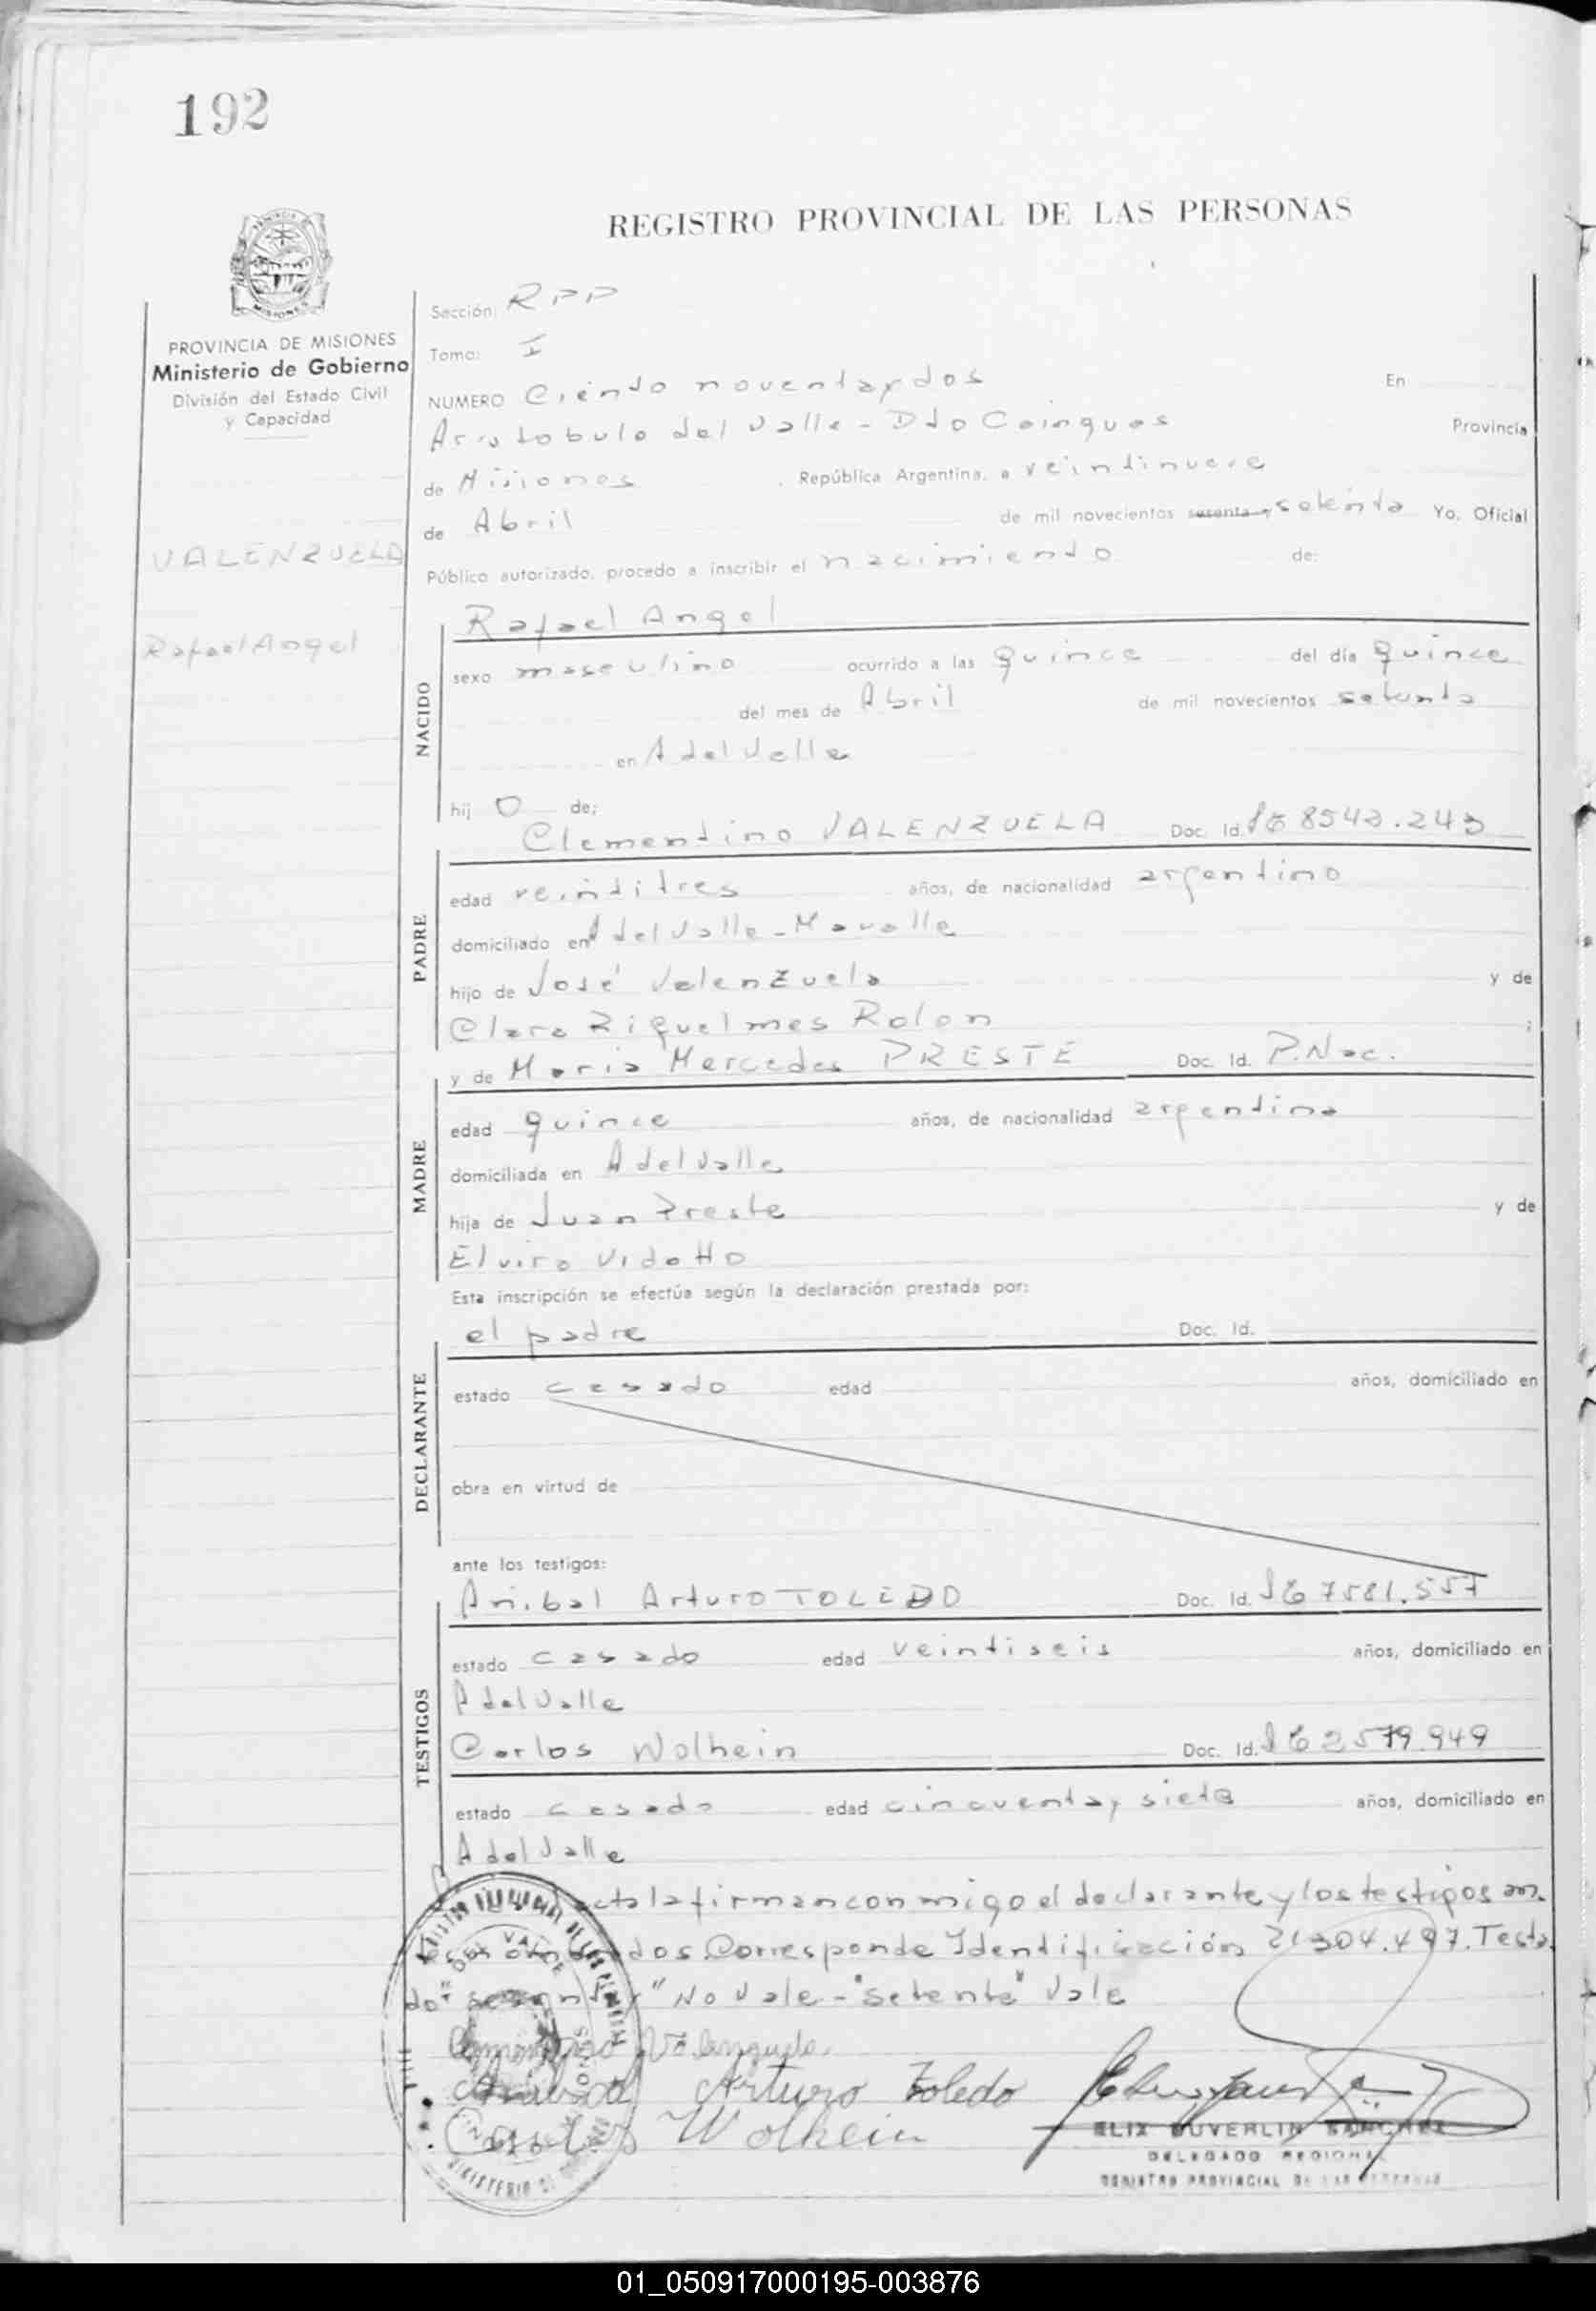 192
REGISTRO PROVINCIAL DE LAS PERSONAS
PROVINCIA DE MISIONES
Ministerio de Gobierno
División del Estado Civil
y Capacidad
VALENZUELA
Rafael Angel
Sección: RPP
Tomo: I
NUMERO Ciento noventa y dos En
Aristobulo del Valle - Dto Cainguas Provincia
de Misiones , República Argentina, a veintinueve
de Abril de mil novecientos sesenta y setenta Yo, Oficial
Público autorizado, procedo a inscribir el nacimiento de:
NACIDO
Rafael Angel
sexo masculino ocurrido a las quince del día quince
del mes de Abril de mil novecientos setenta
en A del Valle
hij o de;
Clementino VALENZUELA Doc. Id. 8543.243
PADRE
edad veintitres años, de nacionalidad argentino
domiciliado en A del Valle -
hijo de José Valenzuela y de
Clara Riquelmes Rolon ;
y de Maria Mercedes PRESTE Doc. Id. P. Nac.
MADRE
edad quince años, de nacionalidad argentina
domiciliada en A del Valle
hija de Juan Preste y de
Elvira Vidotto
Esta inscripción se efectúa según la declaración prestada por:
el padre Doc. Id.
DECLARANTE
estado casado edad años, domiciliado en
obra en virtud de
ante los testigos:
Anibal Arturo TOLEDO Doc. Id. 7581.557
TESTIGOS
estado casado edad veintiseis años, domiciliado en
A del Valle
Carlos Wolhein Doc. Id. 2579.949
estado casado edad cincuenta y siete años, domiciliado en
A del Valle
acta la firman conmigo el declarante y los testigos an
dos Corresponde Identificación 21304.497. Testa
do "sesenta y" No Vale - "setenta" Vale
Valenzuela
Anibal Arturo Toledo
Carlos Wolhein
ELIX DUVERLIN SANCHEZ
DELEGADO REGIONAL
REGISTRO PROVINCIAL DE LAS PERSONAS
01_050917000195-003876